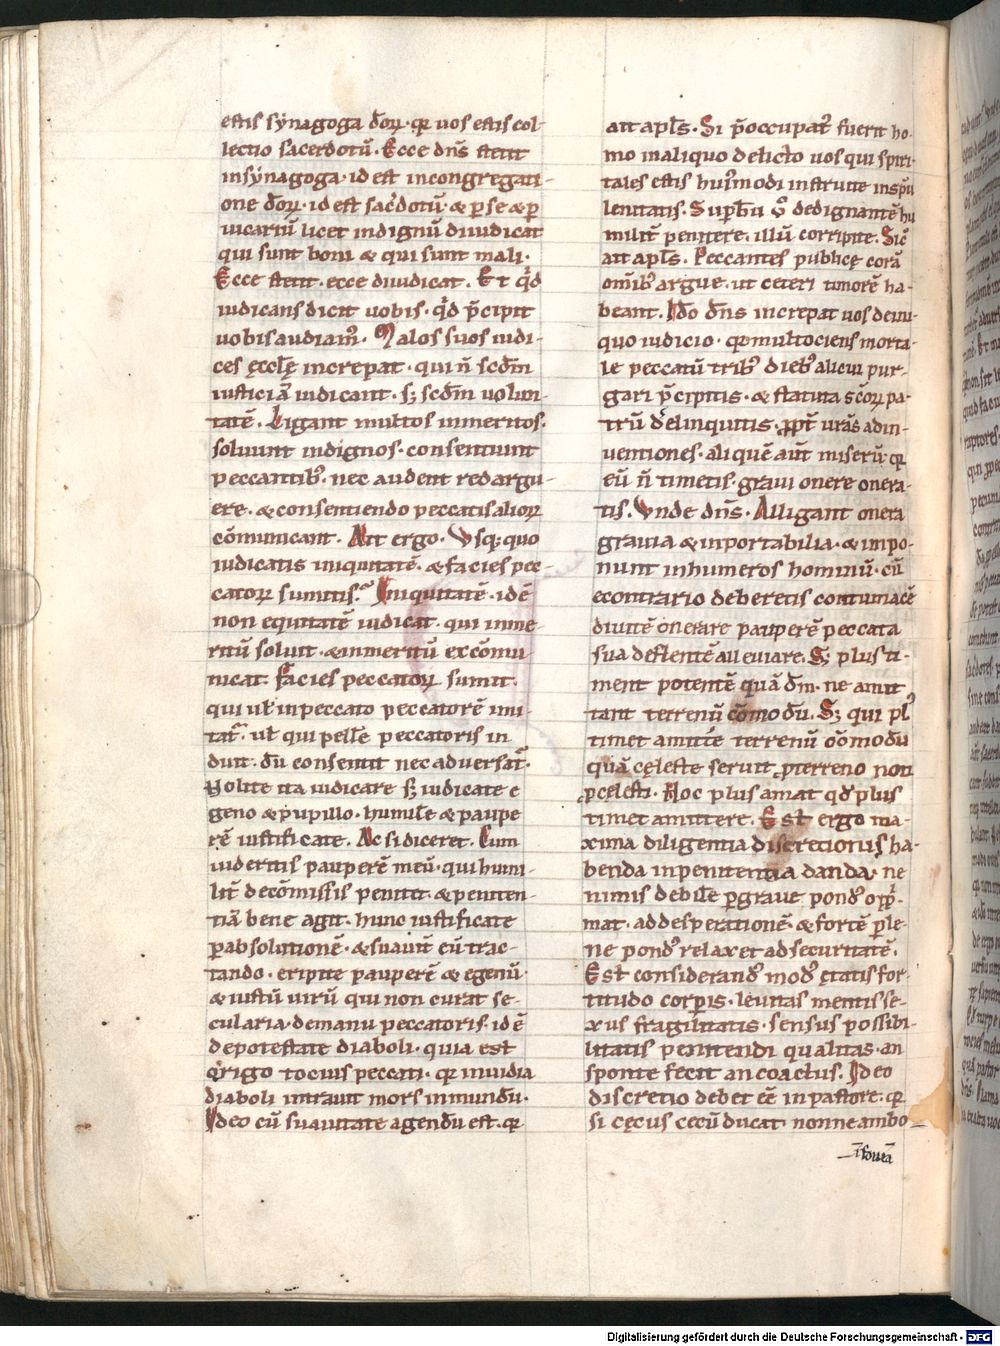 estis synagoga dõꝝ· q̃ uos estis col-
lectio sacerdotũ· Ecce dñs stetit
in synagoga· id est in congregati-
one dõꝝ· id est sac̃dotũ· & p se & p
uicariũ licet indignũ diiudicat
qui sunt boni & qui sunt mali·
Ecce stetit· ecce diiudicat· Et qͥd
iudicans dicit uobis· qͥd p̃cipit
uobis audiamꝰ· Malos suos iudi-
ces ęccłę increpat· qui ñ scd̃m
iusticiã iudicant· sꝫ scd̃m uolun-
tatẽ· Ligant multos inmeritos·
soluunt indignos· consentiunt
peccantibꝰ· nec audent redargu-
ere· & consentiendo peccatis alioꝝ
cõmunicant· Ait ergo· Vsqꝫ quo
iudicatis iniquitatẽ· & facies pec-
catoꝝ sumitis· Iniquitatẽ· id ẽ
non equitatẽ iudicat· qui inme-
ritũ soluit· & inmeritũ excõmu-
nicat· Facies peccatoꝝ sumit·
qui uł in peccato peccatorẽ imi-
tat᷑· uł qui pelłe peccatoris in
duit· dũ consentit nec aduersat᷑·
Nolite ita iudicare sꝫ iudicate e
geno & pupillo· humilẽ & paupe
rẽ iustificate· Ac si diceret· Cum
uideritis pauperẽ meũ· qui humi-
lit̃ de cõmissis penitet· & peniten-
tiã bene agit· hunc iustificate
p absolutionẽ· & suauit̃ eũ trac-
tando· eripite pauperẽ & egenũ·
& iustũ uirũ qui non curat se-
cularia· de manu peccatoris· id ẽ
de potestate diaboli· quia est
origo tocius peccati· q̃ inuidia
diaboli intrauit mors in mundũ·
Ideo cũ suauitate agendũ est· q̃
ait apłs· Si p̃occupatꝰ fuerit ho-
mo in aliquo delicto uos qui spiri-
tales estis huiꝰmodi instruite in sp̃u
lenitatis· Supbũ ũo dedignantẽ hu
milit̃ penitere· illũ corripite· Sic̃
ait apłs· Peccantes publicę corã
omĩbꝰ argue· ut ceteri timorẽ ha-
beant· Ido dñs increpat uos de ini-
quo iudicio· q̃ multociens morta-
le peccatũ tribꝰ diebꝰ alicui pur-
gari p̃cipitis· & statuta sc̃oꝝ pa-
trũ delinquitis· ꝓpt̃ urãs adin-
uentiones· aliquẽ aut̃ miserũ q̃
eũ ñ timetis· graui onere onera-
tis· Vnde dñs· Alligant onera
grauia & inportabilia· & impo-
nunt in humeros hominũ· cũ
econtrario deberetis contumacẽ
diuitẽ onerare pauperẽ peccata
sua deflentẽ alleuiare· Sꝫ plus ti-
ment potentẽ quã dm̃· ne amit
tant terrenũ cõmodũ· Sꝫ qui plꝰ
timet amittẽ terrenũ cõmodũ
quã cęleste seruit ꝓ terreno non
ꝓ cęlesti· Hoc plus amat qd̃ plus
timet amittere· Est ergo ma-
xima diligentia discretionis ha-
benda in penitentia danda· ne
nimis debilẽ p graue pondꝰ opp̃-
mat· ad desperationẽ· & fortẽ p le-
ne pondꝰ relaxet ad securitatẽ·
Est considerandꝰ modꝰ ętatis for
titudo corpis· leuitas mentis se-
xus fragilitatis· sensus possibi-
litatis penitendi qualitas· an
sponte fecit an coactus· Ideo
discretio debet eẽ in pastore· q̃
si cęcus cecũ ducat· nonne ambo
ĩ foueã
Digitalisierung gefördert durch die Deutsche Forschungsgemeinschaft - DFG